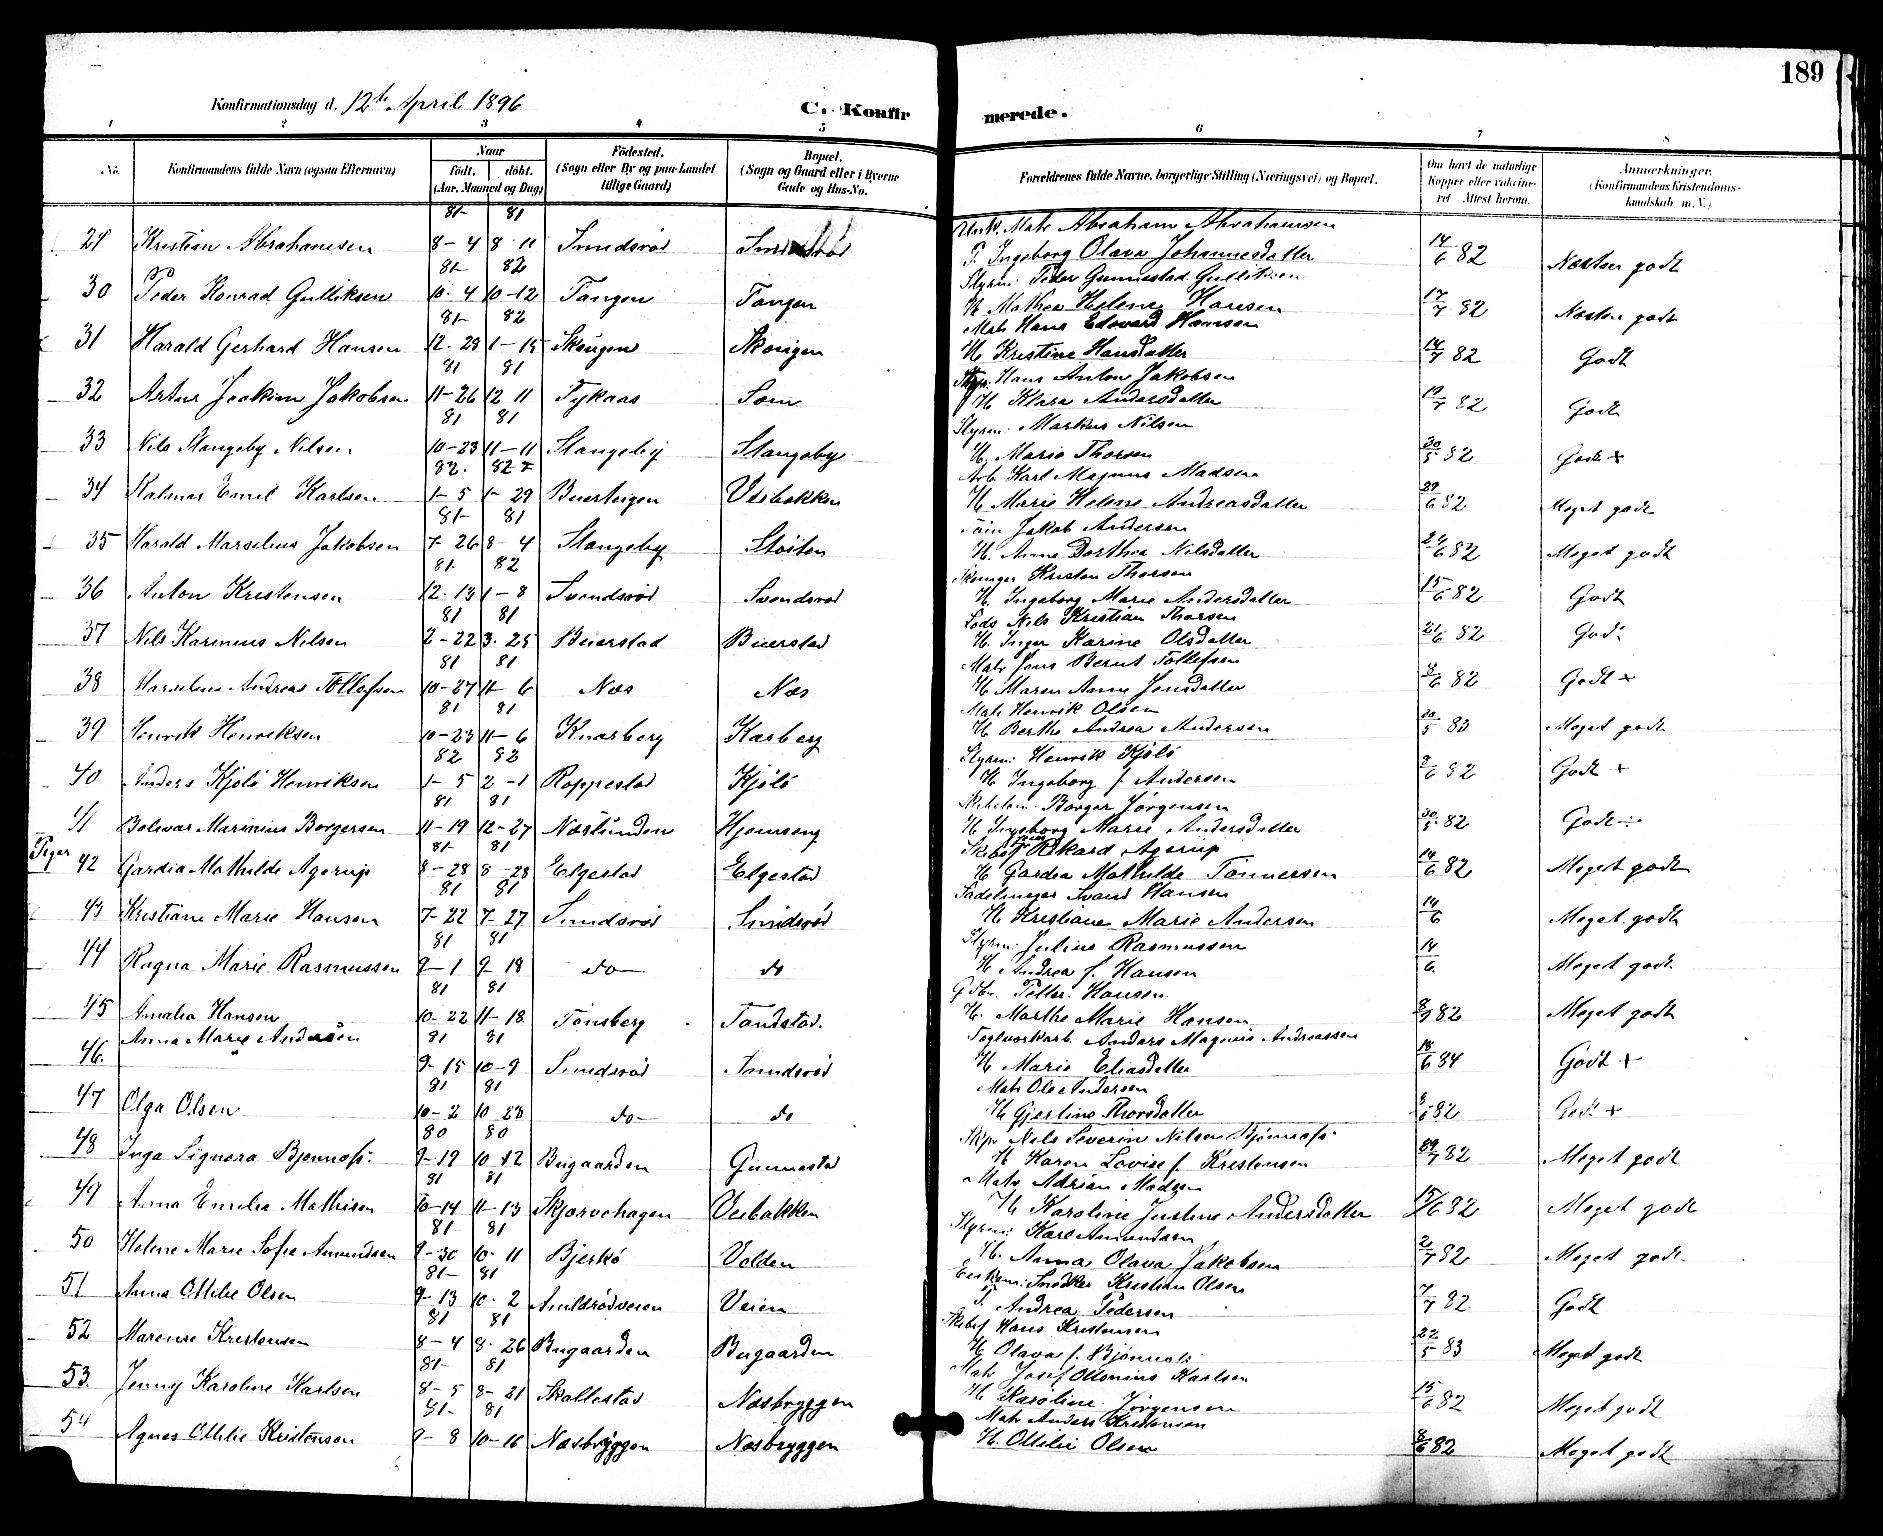 189
Konfirmationsdag d. 12te April 1896 C. Konfirmerede.
1 2 3 4 5 6 7 8
No. Konfirmandens fulde Navn (ogsaa Efternavn) Naar født. døbt. (Aar, Maaned og Dag) Fødested. (Sogn eller By og paa Landet tillige Gaard) Bopæl. (Sogn og Gaard eller i Byerne Gade og Hus-No. Forældrenes fulde Navne, borgerlige Stilling (Næringsvei) og Bopæl. Om havt de naturlige Kopper eller vaccineret Attest herom. Anmærkninger. (Konfirmandens Kristendomskundskab m. V.)
81 81 Mats Abraham Abrahamsen
29 Kristian Abrahamsen 8-4 8 11 Smidsrød Smidsrød F. Ingeborg Olava Johannesdatter 14/6 82 Næsten godt
81 82 Styrm. Peder Gunnestad Gulliksen
30 Peder Konrad Gulliksen 10-4 10-12 Tangen Tangen H. Mathea Helene Hansen 17/7 82 Næsten godt
81 82 Mats Hans Edvard Hansen
31 Harald Gerhard Hansen 12.29 1-15 Skougen Skougen H Kristine Hansdatter 14/7 82 Godt
81 81 Hans Anton Jakobsen
32 Artur Joakim Jakobsen 11-26 12 11 Tykaas Sem H Klara Andersdatter 19/7 82 Godt
81 81 Styrm. Markus Nilsen
33 Nils Stangeby Nilsen 10-23 11-11 Stangeby Stangeby H. Marie Thorsen 30/5 82 Godt +
82 82 Arb. Karl Magnus Madsen
34 Kalmar Emil Karlsen 1-5 1-29 Buerteigen Vesbakken H Marie Helene Andreasdatter 29/6 82 Meget godt
81 81 Jakob Andersen
35 Harald Marselius Jakobsen 7-26 8-4 Stangeby Støiten H. Anne Dorthea Nilsdatter 24/6 82 Meget godt
81 82 Kristen Thorsen
36 Anton Kristensen 12.13 1-8 Svendsrød Svendsrød H. Ingeborg Marie Andersdatter 15/6 82 Godt
81 81 Lods Nils Kristian Thorsen
37 Nils Karinius Nilsen 2-22 3-25 Buerstad Buerstad H. Inger Karine Olsdatter 21/6 82 Godt
81 81 Mats Jens Bernt Tollefsen
38 Marselius Andreas Tollefsen 10-27 11-6 Næs Næs H Maren Anne Jensdatter 8/6 82 Godt +
81 81 Mats Henrik Olsen
39 Henrik Henriksen 10-23 11-6 Knarberg Karberg H Berthe Andrea Andersen 30/5 83 Meget godt
82 82 Styrm. Henrik Kjølø
40 Anders Kjølø Henriksen 1-5 2-1 Roppestad Kjølø H Ingeborg f. Andersen 9/6 82 Godt +
81 81 Borger Jørgensen
41 Bolevar Marinius Borgersen 11-19 12-27 Næslunden Hjemseng H Ingeborg Marie Andersdatter 30/5 82 Godt
Piger 81 81 Skibsf. Rikard Agerup
42 Gardia Mathilde Agerup 8-28 8-28 Elgestad Elgestad H Gardea Mathilde Tønnersen 14/6 82 Meget godt
81 81 Sadelmager Svend Hansen
43 Kristiane Marie Hansen 7-22 7-27 Smidsrød Smidsrød H Kristiane Marie Andersen 14/6 Meget godt
81 81 Styrm. Julius Rasmussen
44 Ragna Marie Rasmussen 9-1 9-18 do do H Andrea f. Hansen 14/6 Meget godt
81 81 Petter Hansen
45 Amalia Hansen 10-22 11-18 Tønsberg Tandstad. H. Marthe Marie Hansen 8/9 82 Meget godt
81 81 Teglværksarb. Anders Magnus Andreassen
46. Anna Marie Andersen 9-15 10-9 Smidsrød Smidsrød H Marie Eliasdatter 18/6 84 Godt +
81 81 Mats Ole Andersen
47 Olga Olsen 10-2 10 23 do do H Gjertine Thorsdatter 8/6 82 Godt +
80 80 Skipr Nils Severin Nilsen Bjønness
48 Inga Signora Bjønness 9-19 10 12 Bugaarden Gunnestad H Karen Lovise f. Kristensen 29/7 82 Meget godt
81 81 Mats Adrian Madsen
49 Anna Emilie Mathisen 10-14 11-13 Skjærvehagen Vesbakken H Karoline Justine Andersdatter 15/6 82 Meget godt
81 81 Styrm. Karl Amundsen
50 Helene Marie Sofie Amundsen 9-30 10-11 Bjerkø Volden H. Anna Olava Jakobsen 2/7 82 Meget godt
81 81 Enkem: Snedker Kristian Olsen
51 Anna Otilie Olsen 9-13 10-2 Amildrødveien Veien F. Andrea Pedersen 7/7 82 Godt
81 81 Skibsf Hans Kristensen
52 Marense Kristensen 8-4 8-26 Bugaarden Bugaarden H Olava f. Bjønness 22/5 83 Meget godt
81 81 Mats Josef Ottonius Karlsen
53. Jenny Karoline Karlsen 8-5 8-21 Skallestad Næsbryggen H Karoline Jørgensen 15/6 82 Meget godt
81 81 Mats Anders Kristensen
54 Agnes Otilie Kristensen 9-8 10-16 Næsbryggen Næsbryggen H. Otilie Olsen 8/6 82 Meget godt